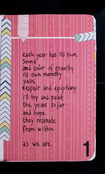 each year has its own
sound
and color of gravity
its own memory
pain,
despair and epiphany
i'll try and paint
the years so far
and hope
they resonate
from within

as we are.
1